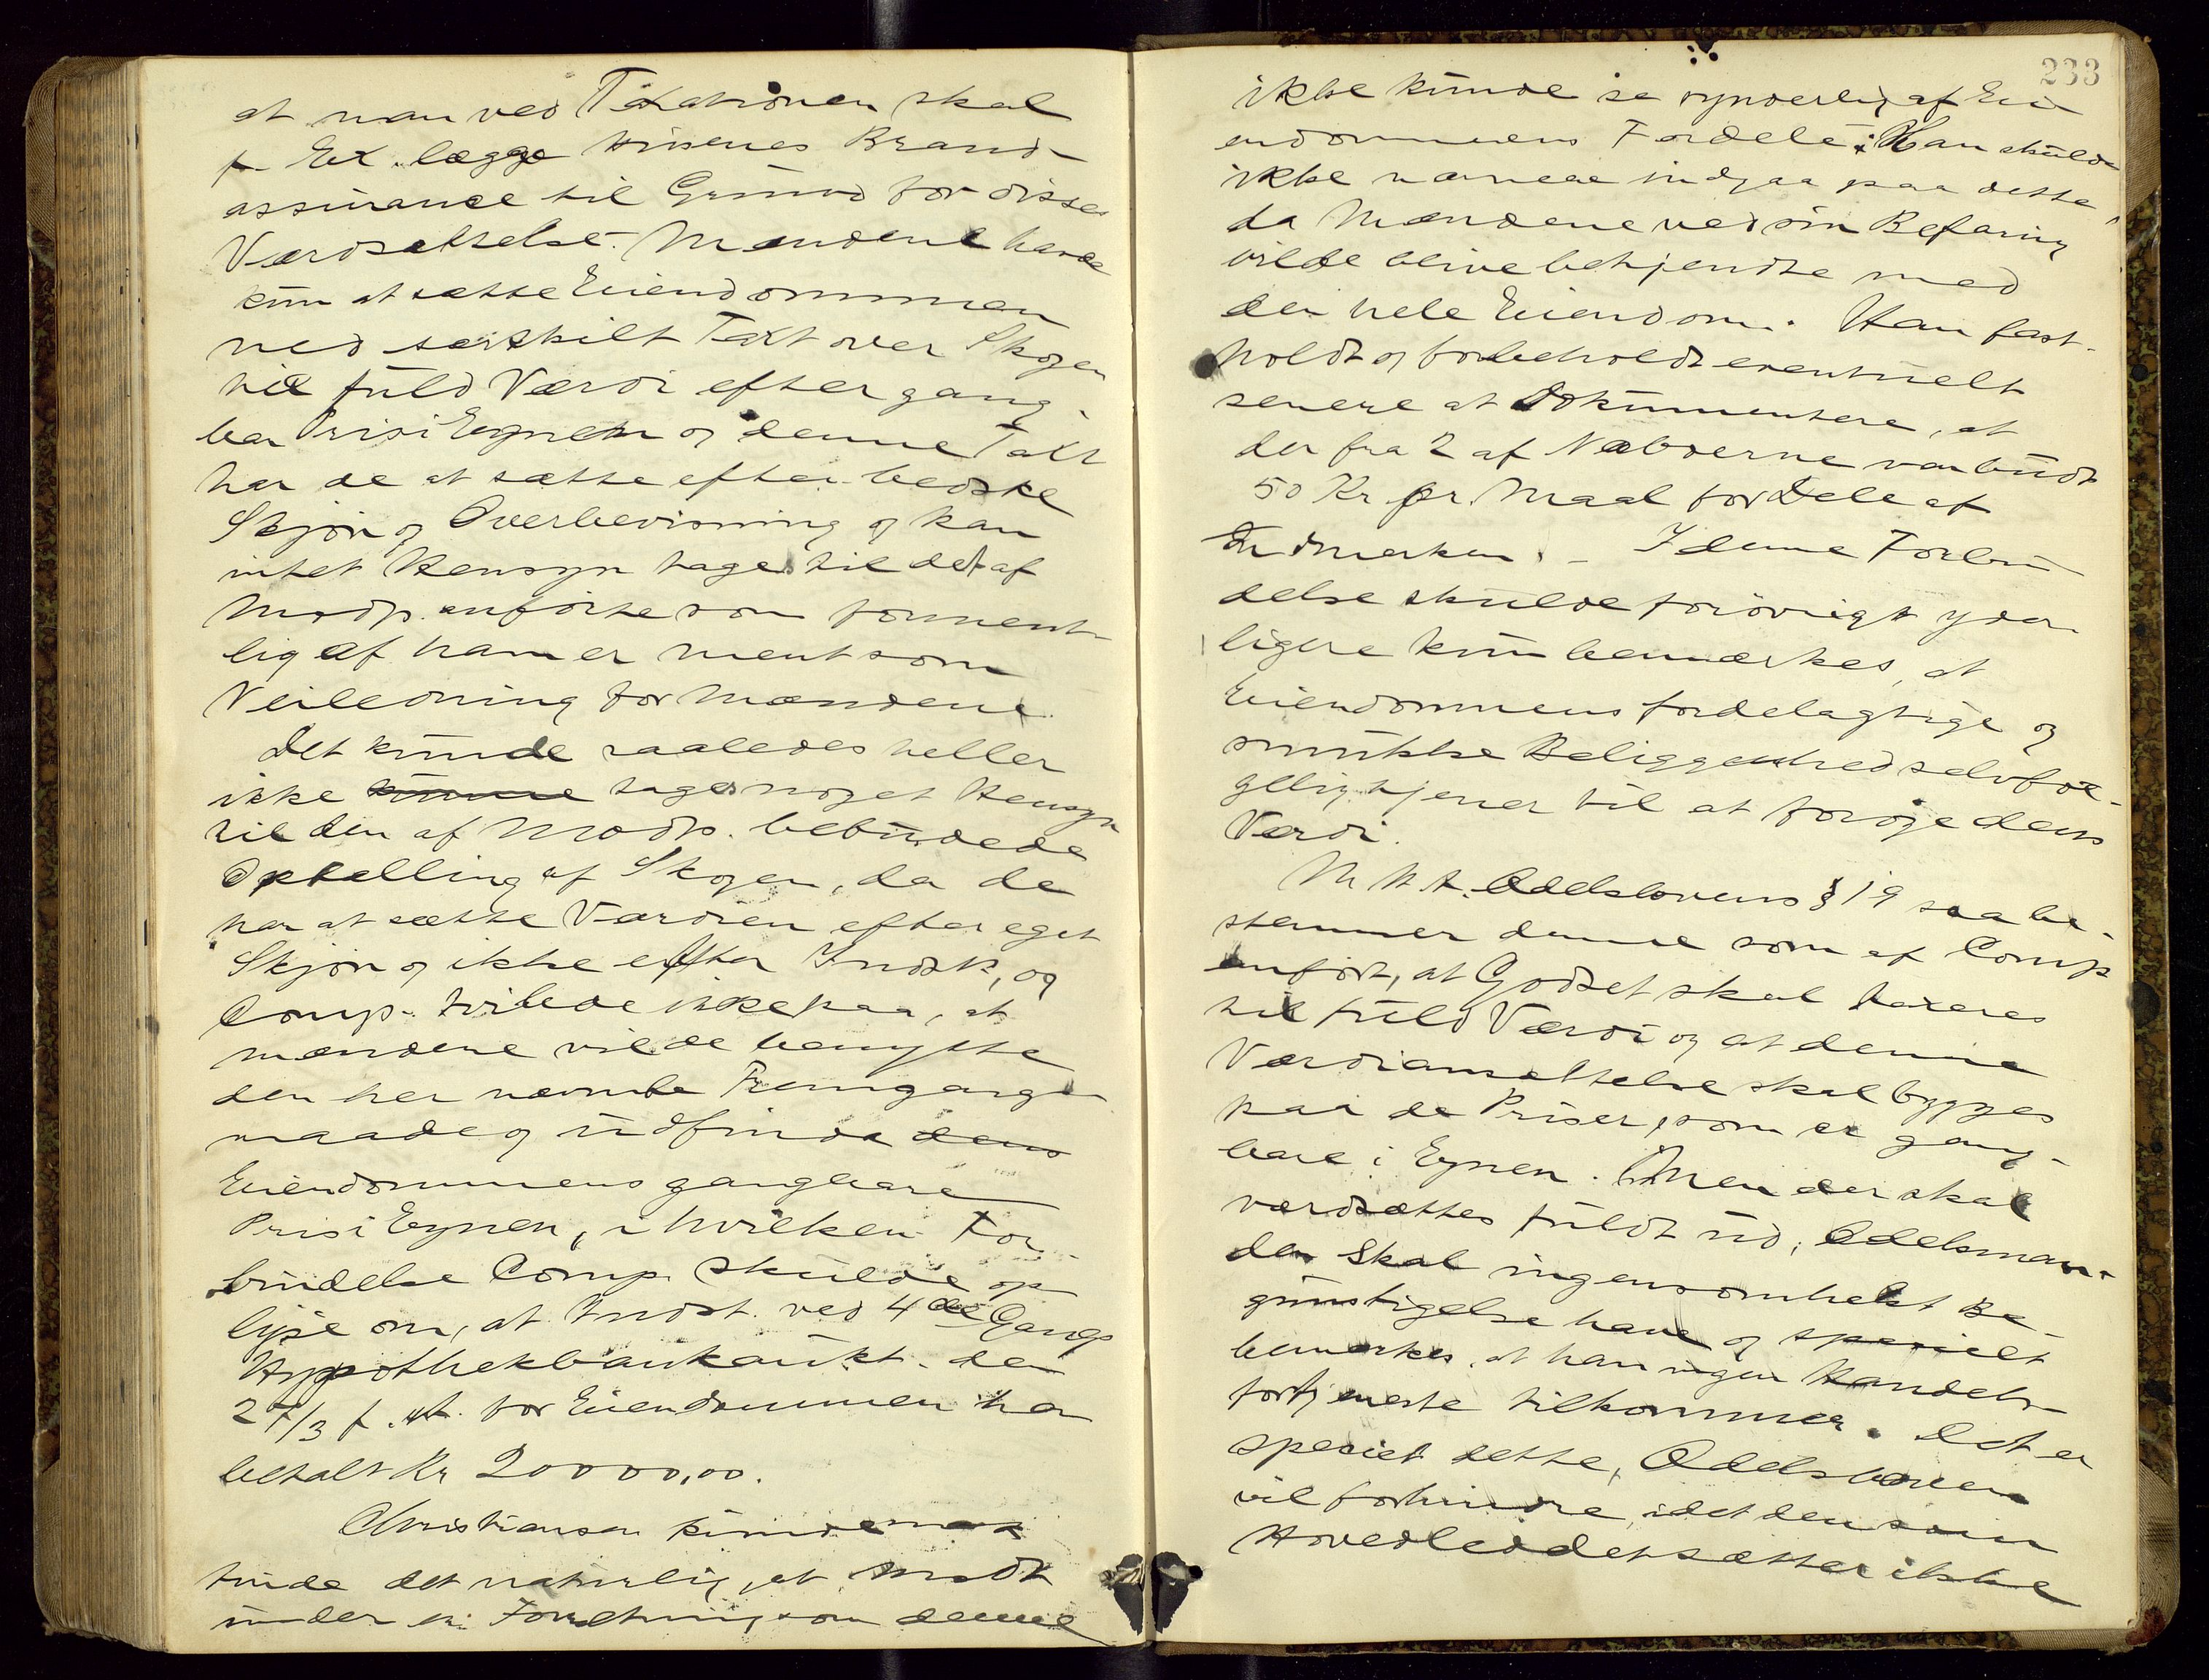 at man ved Taxationen skal
f. Ex. lægge Husenes Brand-
assurance til Grund for disses
Værdsættelse. Mændene havde
kun at sætte Eiendommen
med særskilt Taxt over Skogen
til fuld Værdi efter gang-
bar Pris i Egnen og denne Taxt
har de at sætte efter bedste
Skjøn og Overbevisning og kan
intet Hensyn tages til det af
Modp. anførte som forment-
lig af ham er ment som
Veiledning for Mændene.
Det kunde saaledes heller
ikke kunne tages noget Hensyn
til den af Modp. bebudede
Optælling af Skogen, da de
har at sætte Værdien efter eget
Skjøn og ikke efter Indst, og
Comp. tvilede ikke paa, at
mændene vilde benytte
den her nævnte Fremgangs-
maade og udfinde dens
Eiendommens gangbare
Pris i Egnen, i hvilken For-
bindelse Comp. skulde op-
lyse om, at Indst. ved 4de Gangs
Hypothekbankaukt. den
27/3 f. A. for Eiendommen har
betalt Kr 20000,00.
Christiansen kunde
finde det naturlig, at Indst
under en Forretning som denne
233
ikke kunde se synderlig af Eien
endommens Fordele. Han skulde
ikke nærmere indgaa paa dette,
da Mændene ved sin Befaring
vilde blive bekjendte med
den hele Eiendom. Han fast-
holdt og forbeholdt eventuelt
senere at dokumentere, at
der fra 2 af Naboerne var budt
50 Kr pr. Maal for Dele af
Indmarken. - I denne Forbin
delse skulde forøvrigt yder-
ligere kun bemærkes, at
Eiendommens fordelagtige og
smukke Beliggenhed selvføl-
gelig tjener til at forøge dens
Værdi.
M. H. t. Odelslovens § 19 saa be-
stemmer denne som af Comp
anført, at Godset skal taxeres
til fuld Værdi og at denne
Værdiansættelse skal bygges
paa de Priser, som er gang-
bare i Egnen. Men der skal
værdsættes fuldt ud, Odelsman-
den skal ingensomhelst Be-
gunstigelse have og specielt
bemærkes, at han ingen Handels-
fortjeneste tilkommer. Det er
specielt dette, Odelsloven
vil forhindre, idet den som
Hovedleddet sætter ikke